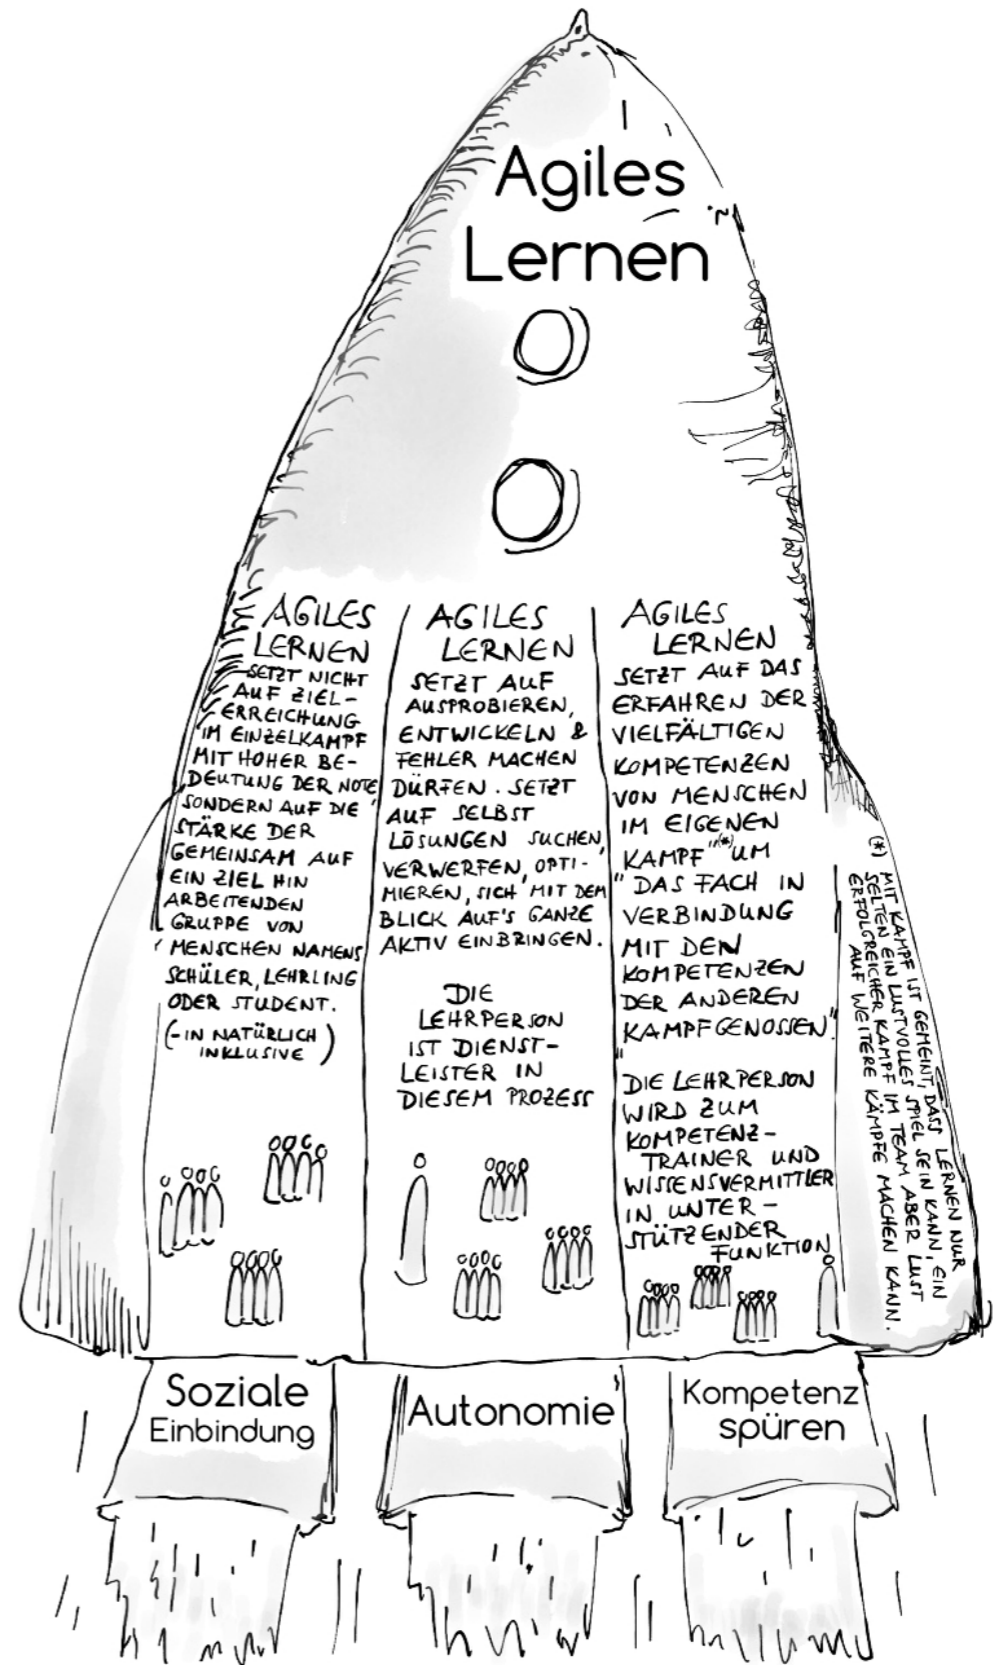 Agiles
Lernen
AGILES
LERNEN
SETZT NICHT
AUF ZIEL-
ERREICHUNG
IM EINZELKAMPF
MIT HOHER BE-
DEUTUNG DER NOTE,
SONDERN AUF DIE
STÄRKE DER
GEMEINSAM AUF
EIN ZIEL HIN
ARBEITENDEN
GRUPPE VON
MENSCHEN NAMENS
SCHÜLER, LEHRLING
ODER STUDENT.
(-IN NATÜRLICH
INKLUSIVE)
AGILES
LERNEN
SETZT AUF
AUSPROBIEREN,
ENTWICKELN &
FEHLER MACHEN
DÜRFEN. SETZT
AUF SELBST
LÖSUNGEN SUCHEN,
VERWERFEN, OPTI-
MIEREN, SICH MIT DEM
BLICK AUF'S GANZE
AKTIV EINBRINGEN.
DIE
LEHRPERSON
IST DIENST-
LEISTER IN
DIESEM PROZESS
AGILES
LERNEN
SETZT AUF DAS
ERFAHREN DER
VIELFÄLTIGEN
KOMPETENZEN
VON MENSCHEN
IM EIGENEN
KAMPF"(*) UM
"DAS FACH IN
VERBINDUNG
MIT DEN
KOMPETENZEN
DER ANDEREN
"KAMPFGENOSSEN".
DIE LEHRPERSON
WIRD ZUM
KOMPETENZ-
TRAINER UND
WISSENSVERMITTLER
IN UNTER-
STÜTZENDER
FUNKTION
(*)
MIT KAMPF IST GEMEINT, DASS LERNEN NUR
SELTEN EIN LUSTVOLLES SPIEL SEIN KANN, EIN
ERFOLGREICHER KAMPF IM TEAM ABER LUST
AUF WEITERE KÄMPFE MACHEN KANN.
Soziale
Einbindung
Autonomie
Kompetenz
spüren